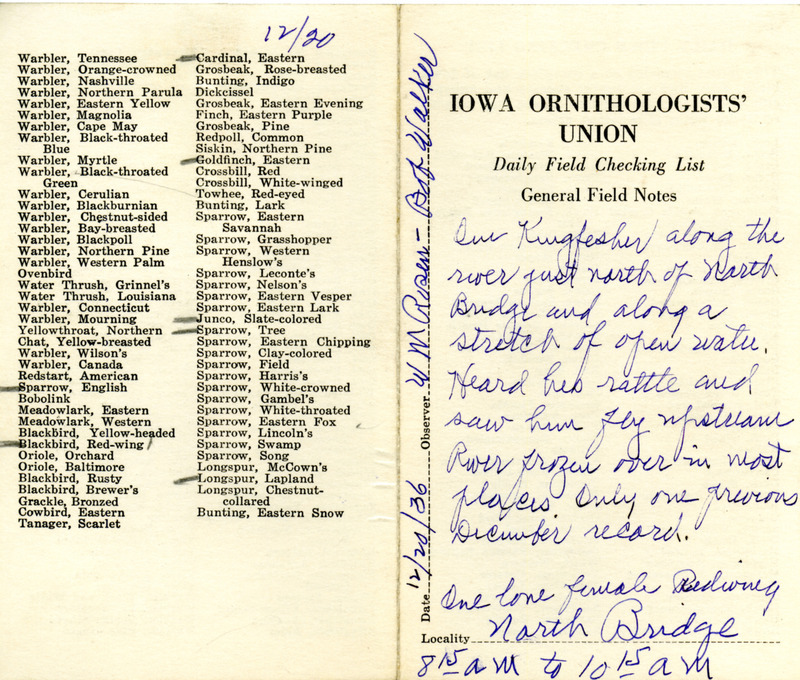 12/20
Warbler, Tennessee
Warbler, Orange-crowned
Warbler, Nashville
Warbler, Northern Parula
Warbler, Eastern Yellow
Warbler, Magnolia
Warbler, Cape May
Warbler, Black-throated
Blue
Warbler, Myrtle
Warbler, Black-throated
Green
Warbler, Cerulian
Warbler, Blackburnian
Warbler, Chestnut-sided
Warbler, Bay-breasted
Warbler, Blackpoll
Warbler, Northern Pine
Warbler, Western Palm
Ovenbird
Water Thrush, Grinnel's
Water Thrush, Louisiana
Warbler, Connecticut
Warbler, Mourning
Yellowthroat, Northern
Chat, Yellow-breasted
Warbler, Wilson's
Warbler, Canada
Redstart, American
Sparrow, English
Bobolink
Meadowlark, Eastern
Meadowlark, Western
Blackbird, Yellow-headed
Blackbird, Red-wing
Oriole, Orchard
Oriole, Baltimore
Blackbird, Rusty
Blackbird, Brewer's
Grackle, Bronzed
Cowbird, Eastern
Tanager, Scarlet
Cardinal, Eastern
Grosbeak, Rose-breasted
Bunting, Indigo
Dickcissel
Grosbeak, Eastern Evening
Finch, Eastern Purple
Grosbeak, Pine
Redpoll, Common
Siskin, Northern Pine
Goldfinch, Eastern
Crossbill, Red
Crossbill, White-winged
Towhee, Red-eyed
Bunting, Lark
Sparrow, Eastern
Savannah
Sparrow, Grasshopper
Sparrow, Western
Henslow's
Sparrow, Leconte's
Sparrow, Nelson's
Sparrow, Eastern Vesper
Sparrow, Eastern Lark
Junco, Slate-colored
Sparrow, Tree
Sparrow, Eastern Chipping
Sparrow, Clay-colored
Sparrow, Field
Sparrow, Harris's
Sparrow, White-crowned
Sparrow, Gambel's
Sparrow, White-throated
Sparrow, Eastern Fox
Sparrow, Lincoln's
Sparrow, Swamp
Sparrow, Song
Longspur, McCown's
Longspur, Lapland
Longspur, Chestnut-
collared
Bunting, Eastern Snow
Date 12/20/36 Observer W M Rosen - Bob Walker
IOWA ORNITHOLOGISTS'
UNION
Daily Field Checking List
General Field Notes
One Kingfesher along the
river just north of North
Bridge and along a
stretch of open water.
Heard his rattle and
saw him fly upstream
River frozen over in most
places. Only one previous
December record.
One lone female Redwing
Locality North Bridge
8 15 a M to 10 15 a M